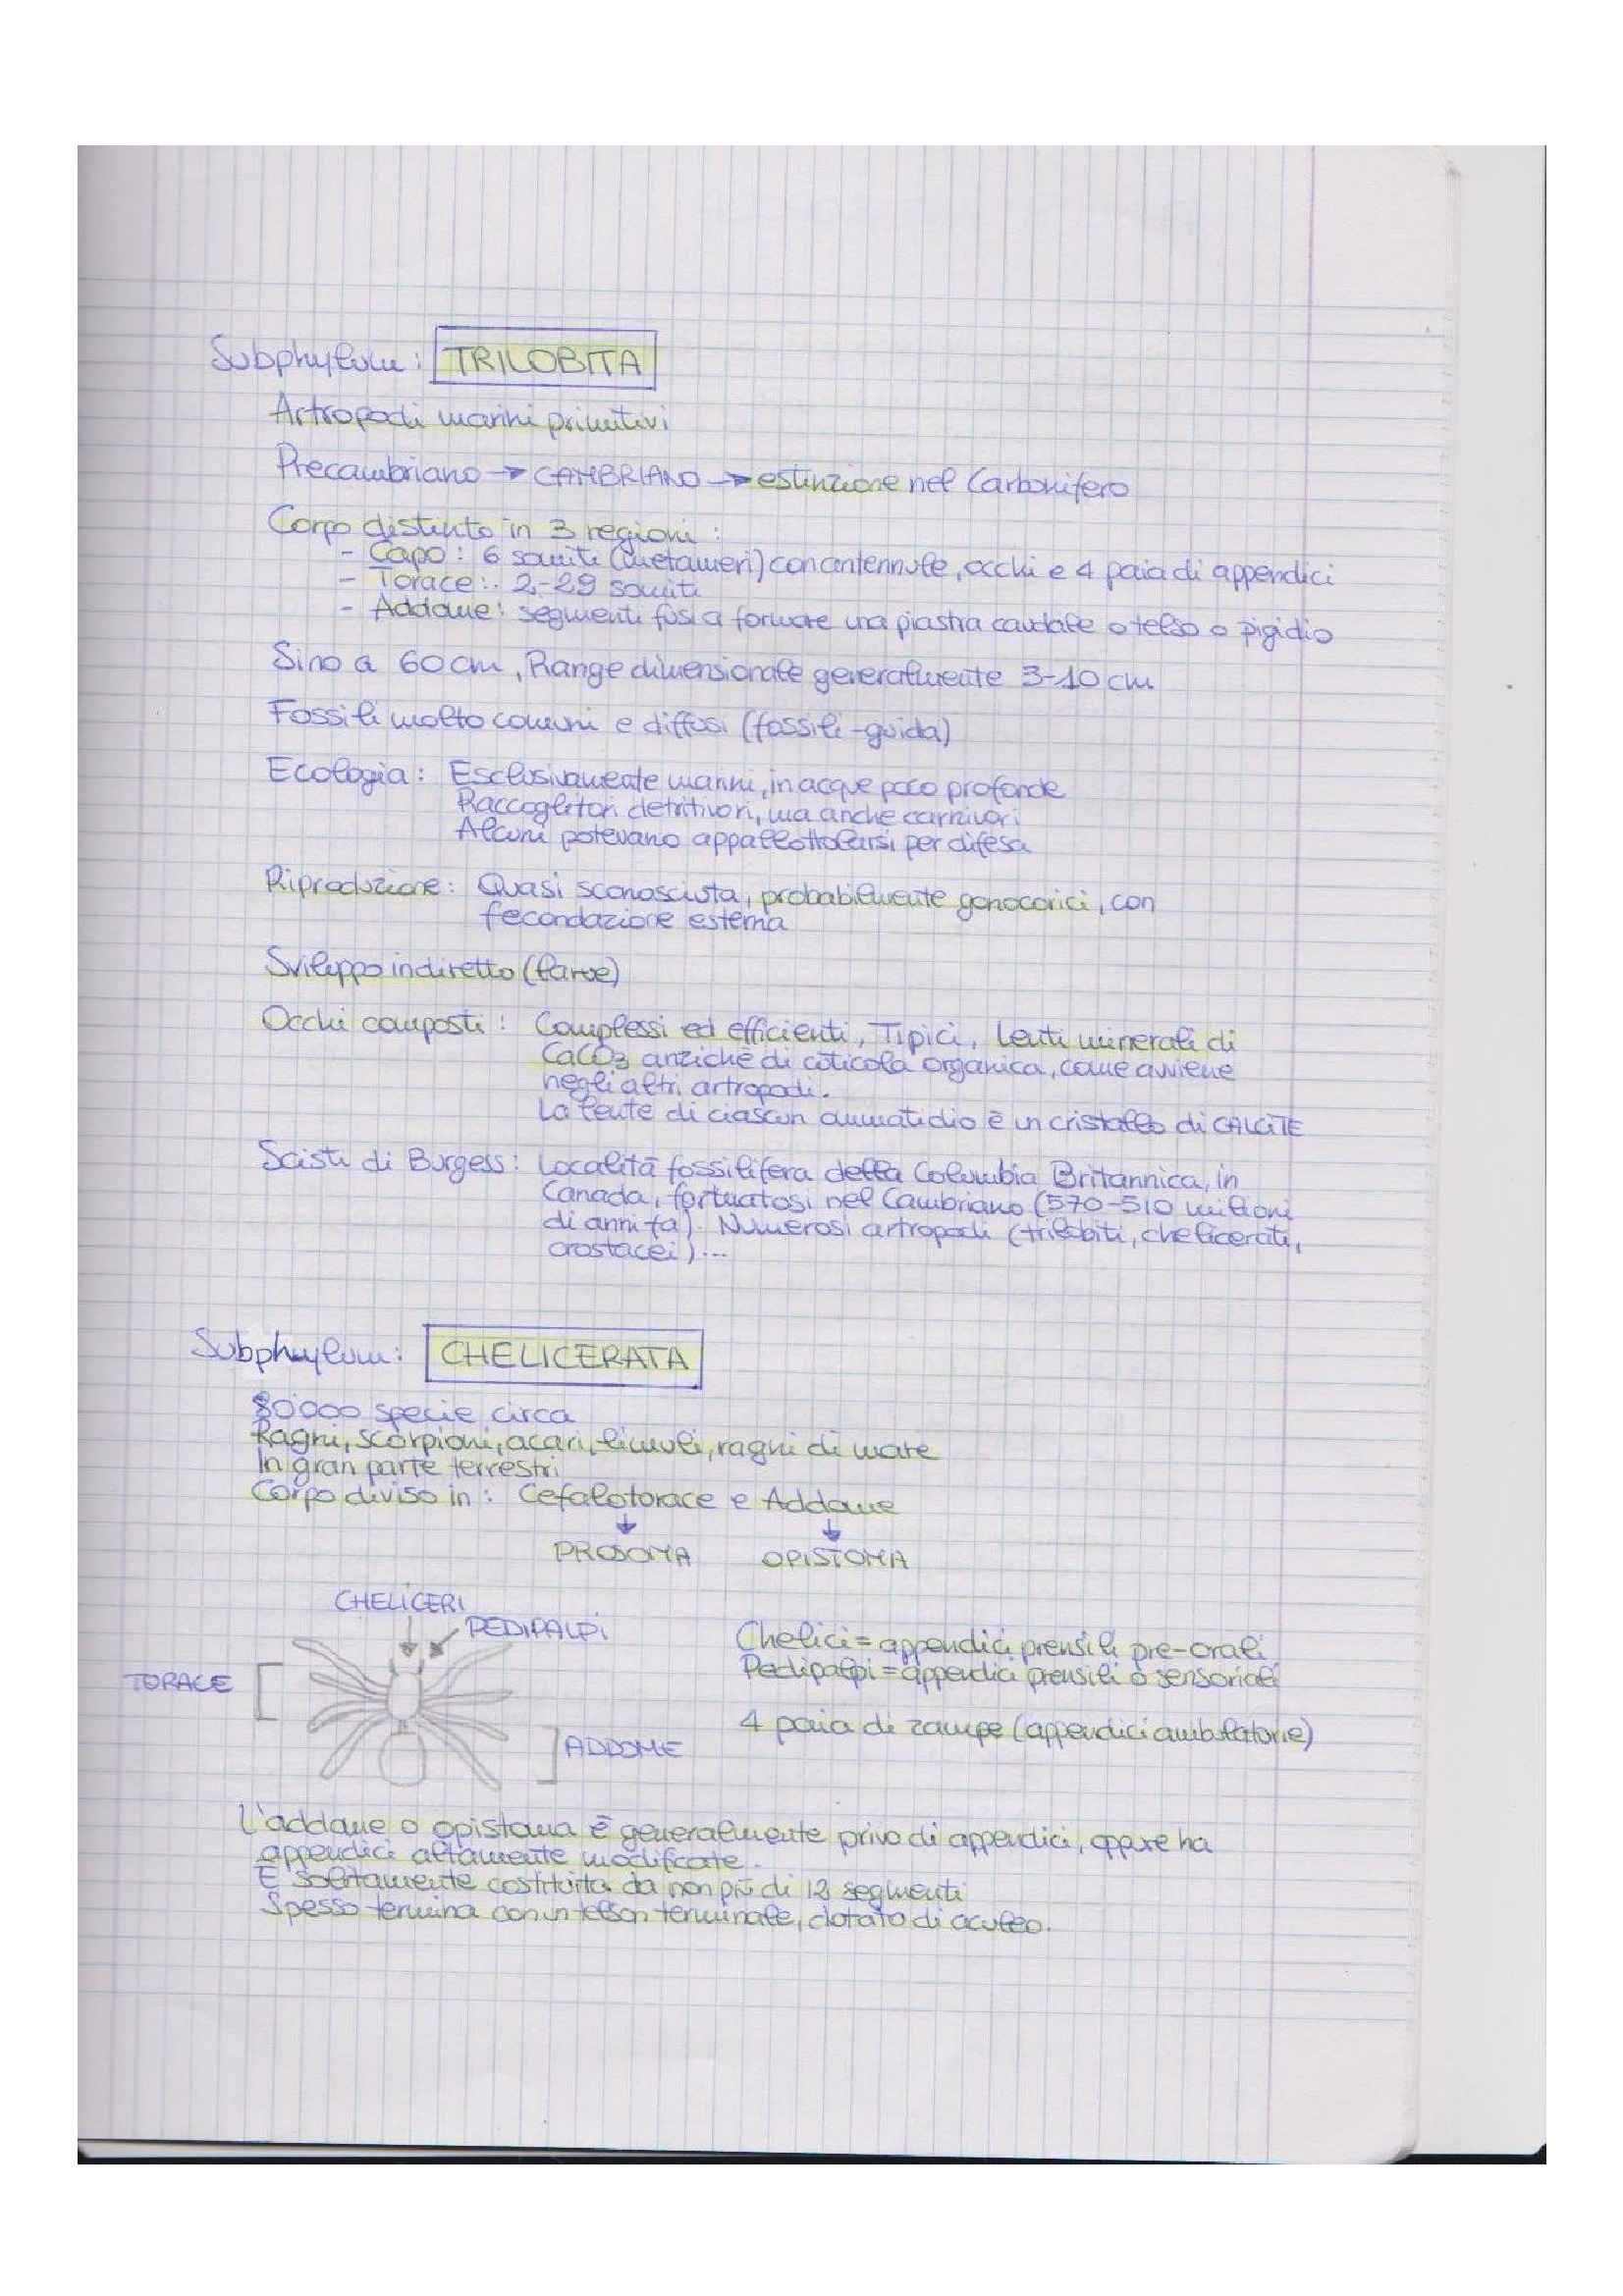 Subphylum: TRILOBITA
Artropodi marini primitivi
Precambriano → CAMBRIANO → estinzione nel Carbonifero
Corpo distinto in 3 regioni:
- Capo: 6 somiti (metameri) con antennule, occhi e 4 paia di appendici
- Torace: 2-29 somiti
- Addome: segmenti fusi a formare una piastra caudale o telso o pigidio
Sino a 60 cm, Range dimensionale generalmente 3-10 cm
Fossili molto comuni e diffusi (fossili-guida)
Ecologia: Esclusivamente marini, in acque poco profonde
Raccoglitori detritivori, ma anche carnivori
Alcuni potevano appallottolarsi per difesa
Riproduzione: Quasi sconosciuta, probabilmente gonocorici, con
fecondazione esterna
Sviluppo indiretto (larve)
Occhi composti: Complessi ed efficienti, Tipici, lenti minerali di
CaCO3 anziché di cuticola organica, come avviene
negli altri artropodi.
La lente di ciascun ommatidio è un cristallo di CALCITE
Scisti di Burgess: Località fossilifera della Columbia Britannica, in
Canada, formatosi nel Cambriano (570-510 milioni
di anni fa). Numerosi artropodi (trilobiti, chelicerati,
crostacei)...
Subphylum: CHELICERATA
80'000 specie circa
Ragni, scorpioni, acari, limuli, ragni di mare
In gran parte terrestri
Corpo diviso in: Cefalotorace e Addome
↓ ↓
PROSOMA OPISTOMA
CHELICERI
PEDIPALPI
TORACE
ADDOME
Chelici = appendici prensili pre-orali
Pedipalpi = appendici prensili o sensoriali
4 paia di zampe (appendici ambulatorie)
L'addome o opistoma è generalmente privo di appendici, oppure ha
appendici altamente modificate.
È solitamente costituita da non più di 12 segmenti
Spesso termina con un telson terminale, dotato di aculeo.